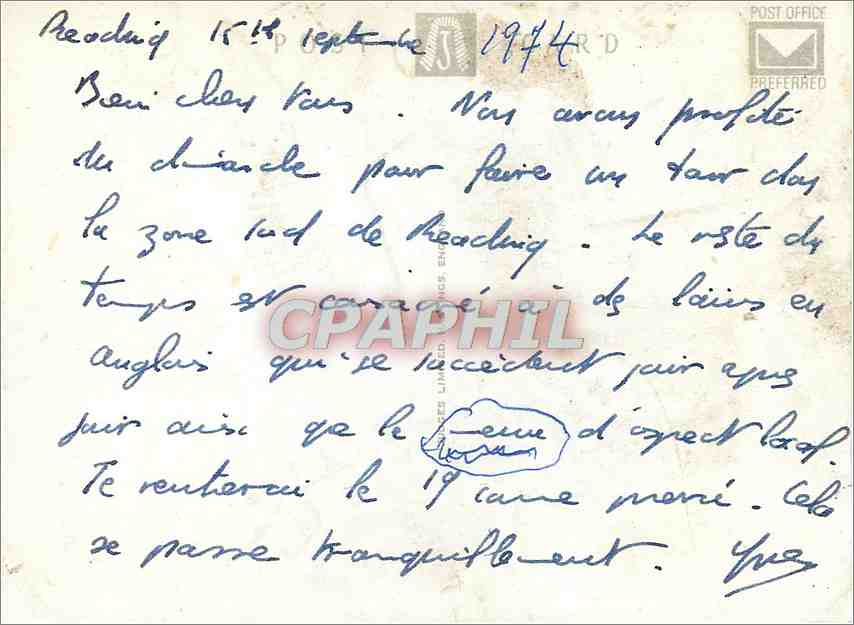 Reading 15 septembre 1974
POST CARD
POST OFFICE
PREFERRED
Bien chers Vous. Nous avons profité
du dimanche pour faire un tour dans
la zone sud de Reading. Le reste du
temps est consacré à des loisirs en
anglais qui se succèdent jour après
jour ainsi que le d'aspect local.
Je rentrerai le 19 comme prévu. Cela
se passe tranquillement. Yves
LIMITED,
CPAPHIL